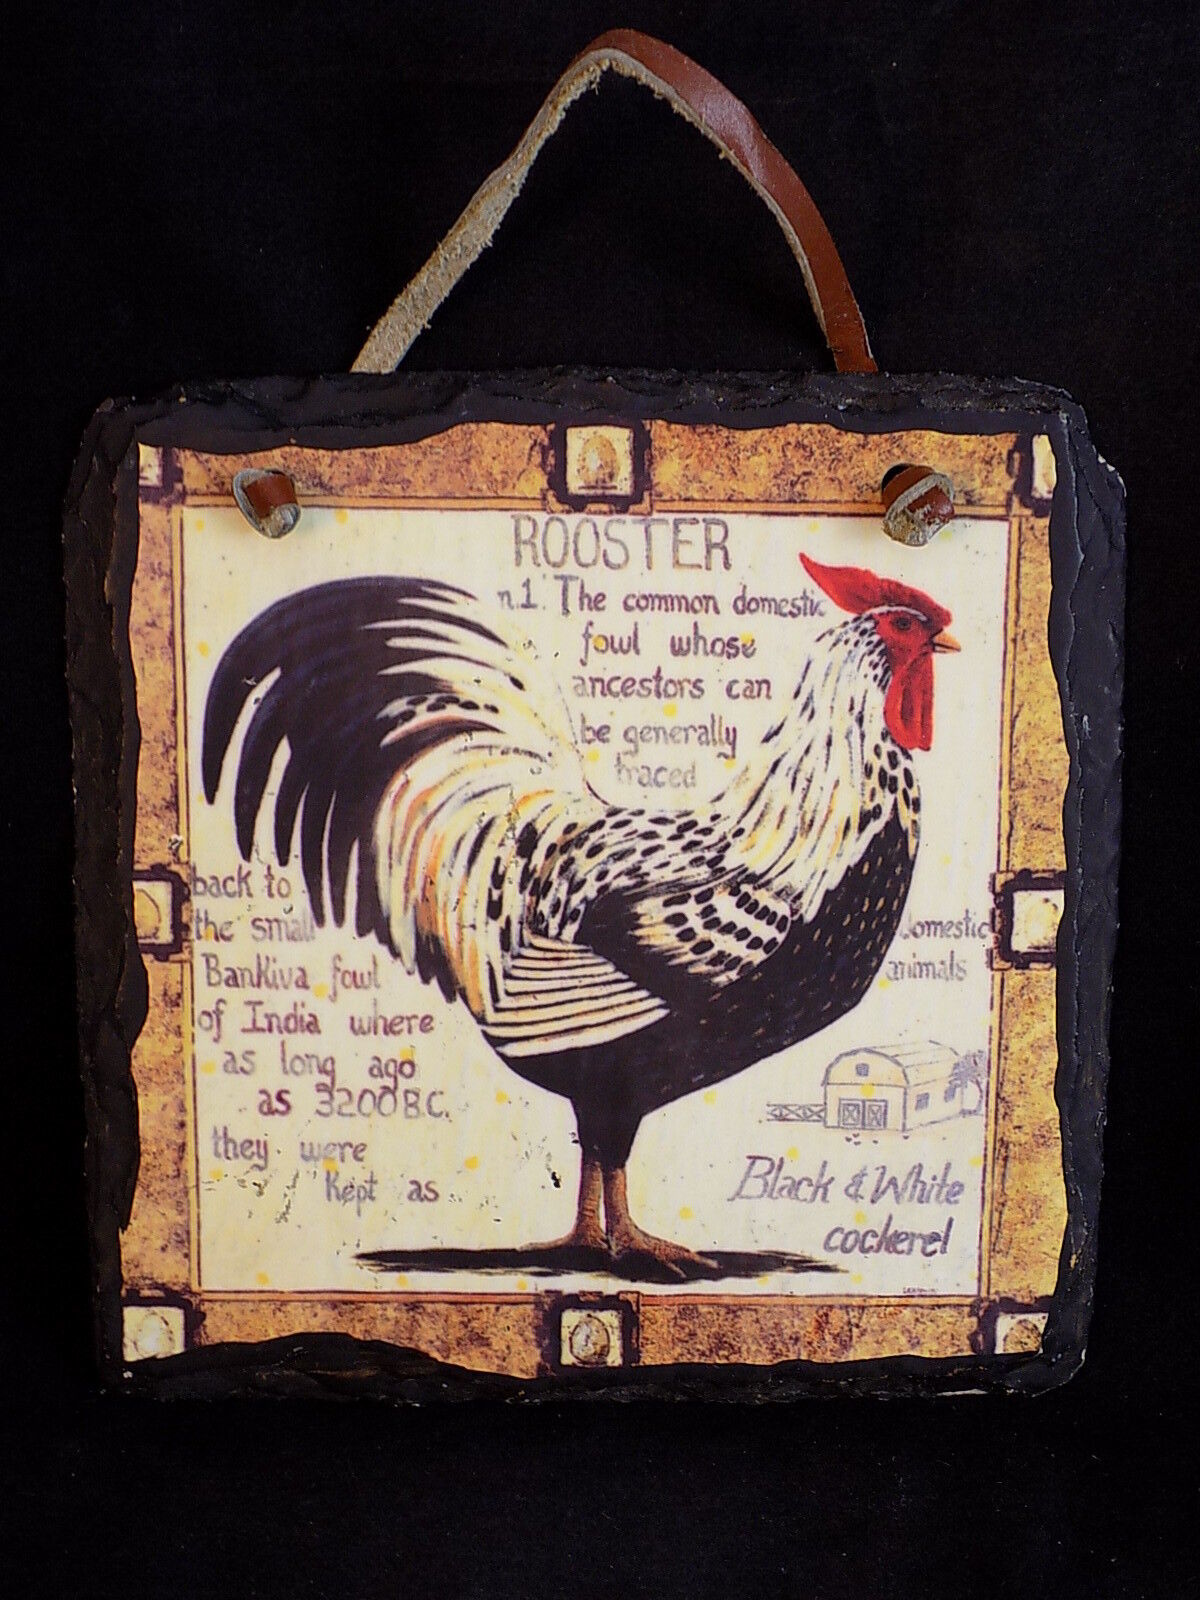 ROOSTER
n.1. The common domestic
fowl whose
ancestors can
be generally
traced
back to
the small
BanKiva fowl
of India where
as long ago
as 3200 B.C.
they were
Kept as
domestic
animals
Black & White
cockerel